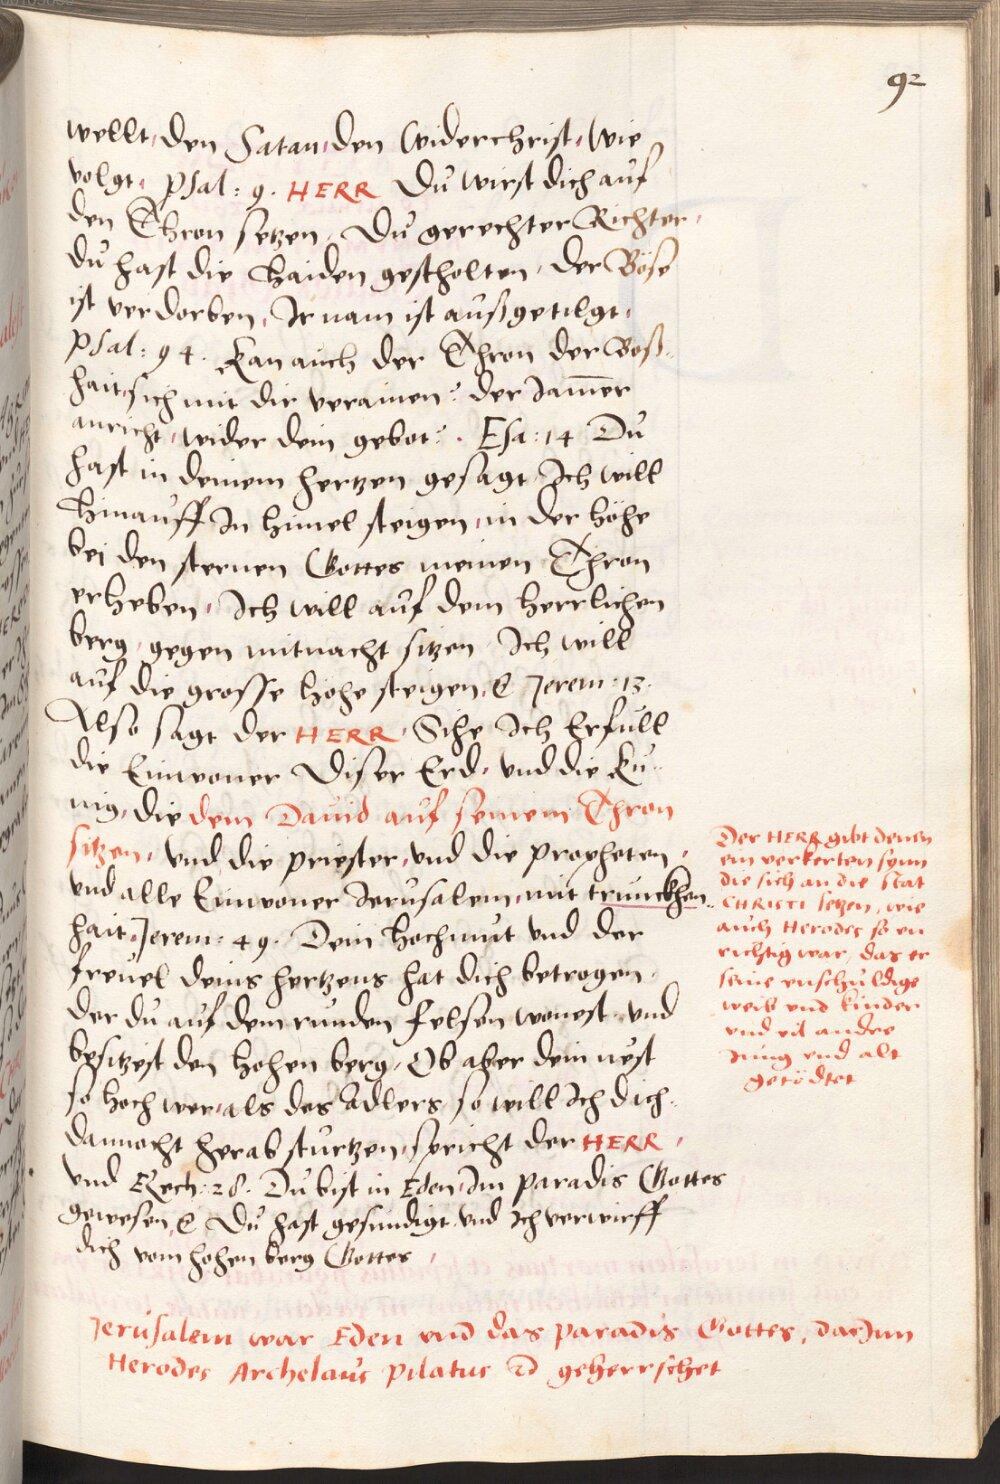 92
wellt, den Satan, den Widerchrist, wie
volgt, Psal: 9. HERR Du wirst dich auf
den Thron setzen, Du gerechter Richter,
du hast die Haiden gescholten, der Böse
ist verdorben, Ir nam ist außgetilgt,
Psal: 94. Kan auch der Thron der Boß-
hait, sich mit dir verainen? der Jam̄er
anricht, wider dein gebot?. Esa: 14 Du
hast in deinem hertzen gesagt, Ich will
Hinauff In himel steigen, in der höhe
bei den sternen Gottes meinen Thron
erheben, Ich will auf dem herrlichen
berg, gegen mitnacht sitzen, Ich will
auf die grosse höhe steigen, &. Jerem: 13.
Also sagt der HERR, Sihe Ich Erfull
die Einwoner Diser Erd, vnd die Ku-
nig, die dem Dauid auf seinem Thron
sitzen, vnd die priester, vnd die propheten,
vnd alle Einwoner Jerusalem, mit trunckhen-
hait, Jerem: 49. Dein Hochmut vnd der
freuel deins hertzens hat dich betrogen,
der du auf dem runden felsen wonest, vnd
besitzest den hohen berg, Ob aber dein nest
so hoch wer, als des Adlers, so will Ich dich
dannocht herab sturtzen, spricht der HERR,
vnd Ezech: 28. Du bist in Eden, Im paradis Gottes
gewesen, &. Du hast gesundigt, vnd Ich verwirff
dich vom hohen berg Gottes,
Der HERR gibt denen
ein verkerten synn
die sich an die stat
CHRISTI setzen, wie
auch Herodes so vn
richtig war, das er
seine vnschuldige
weib vnd kinder
vnd vil andre
Jung vnd alt
getödtet
Jerusalem war Eden vnd das paradis Gottes, darJnn
Herodes Archelaus Pilatus geherrschet